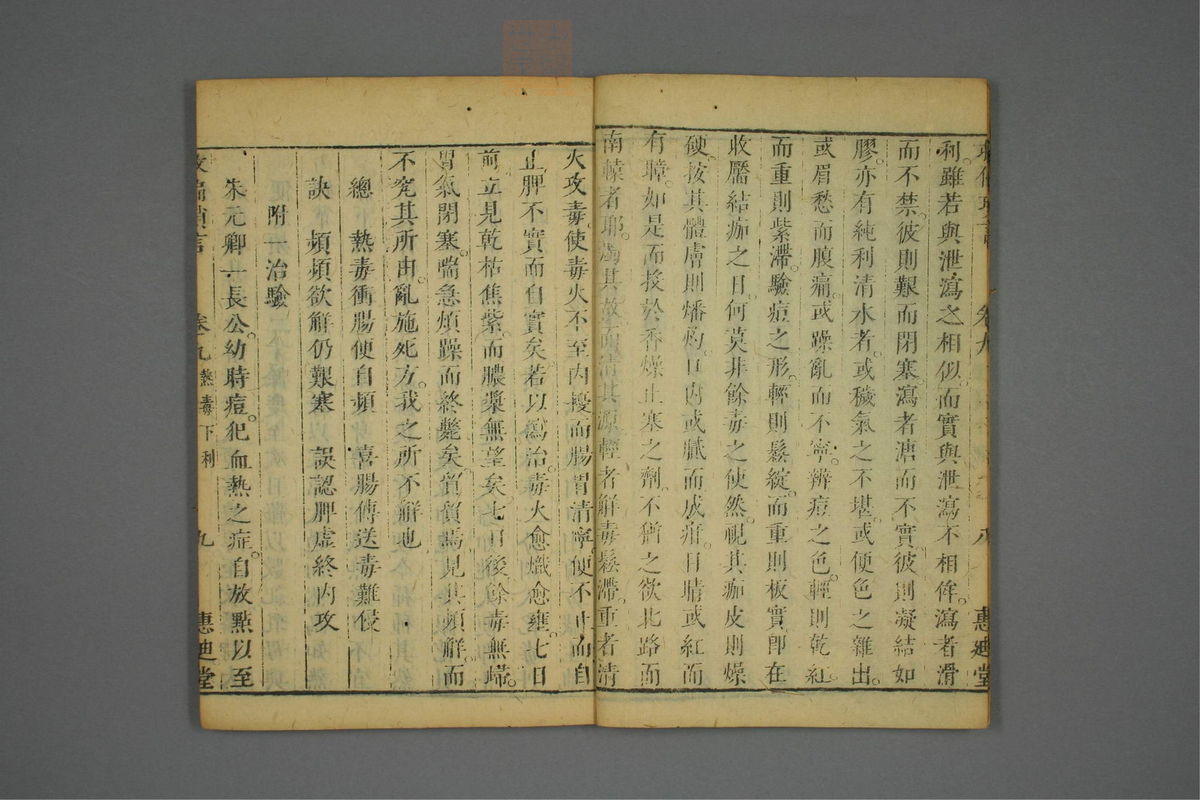 卷九 八 惠迪堂
利。雖若與泄瀉之相似。而實與泄瀉不相侔。瀉者滑
而不禁。彼則艱而閉塞。瀉者溏而不實。彼則凝結如
膠。亦有純利清水者。或穢氣之不堪。或便色之雜出。
或眉愁而腹痛。或躁亂而不寧。辨痘之色。輕則乾紅。
而重則紫滯。驗痘之形。輕則鬆綻。而重則板實。即在
收靨結痂之日。何莫非餘毒之使然。覗其痂皮則燥
硬。按其體膚則燔灼。口內或膩而成疳。目睛或紅而
有障。如是而投於香燥止塞之劑。不猶之欲北路而
南轅者耶。其放而清其源。輕者解毒鬆滯。重者清
火攻毒。使毒火不至內擾。而腸胃清寧。便不止而自
止。脾不實而自實矣。若以瀉治。毒火愈熾愈壅。七日
前立見乾枯焦紫。而膿漿無望矣。七日後餘毒無歸。
胃氣閉塞。喘急煩躁而終斃矣。貿貿焉見其頻解。而
不究其所由。亂施死方。我之所不解也。
總 熱毒衝腸便自頻 喜腸傳送毒難侵
訣 頻頻欲解仍艱塞 誤認脾虛終內攻
附一治驗
朱元卿一長公。幼時痘。犯血熱之症。自放點以至
救偏瑣言 卷之九 熱毒下利 九 惠迪堂